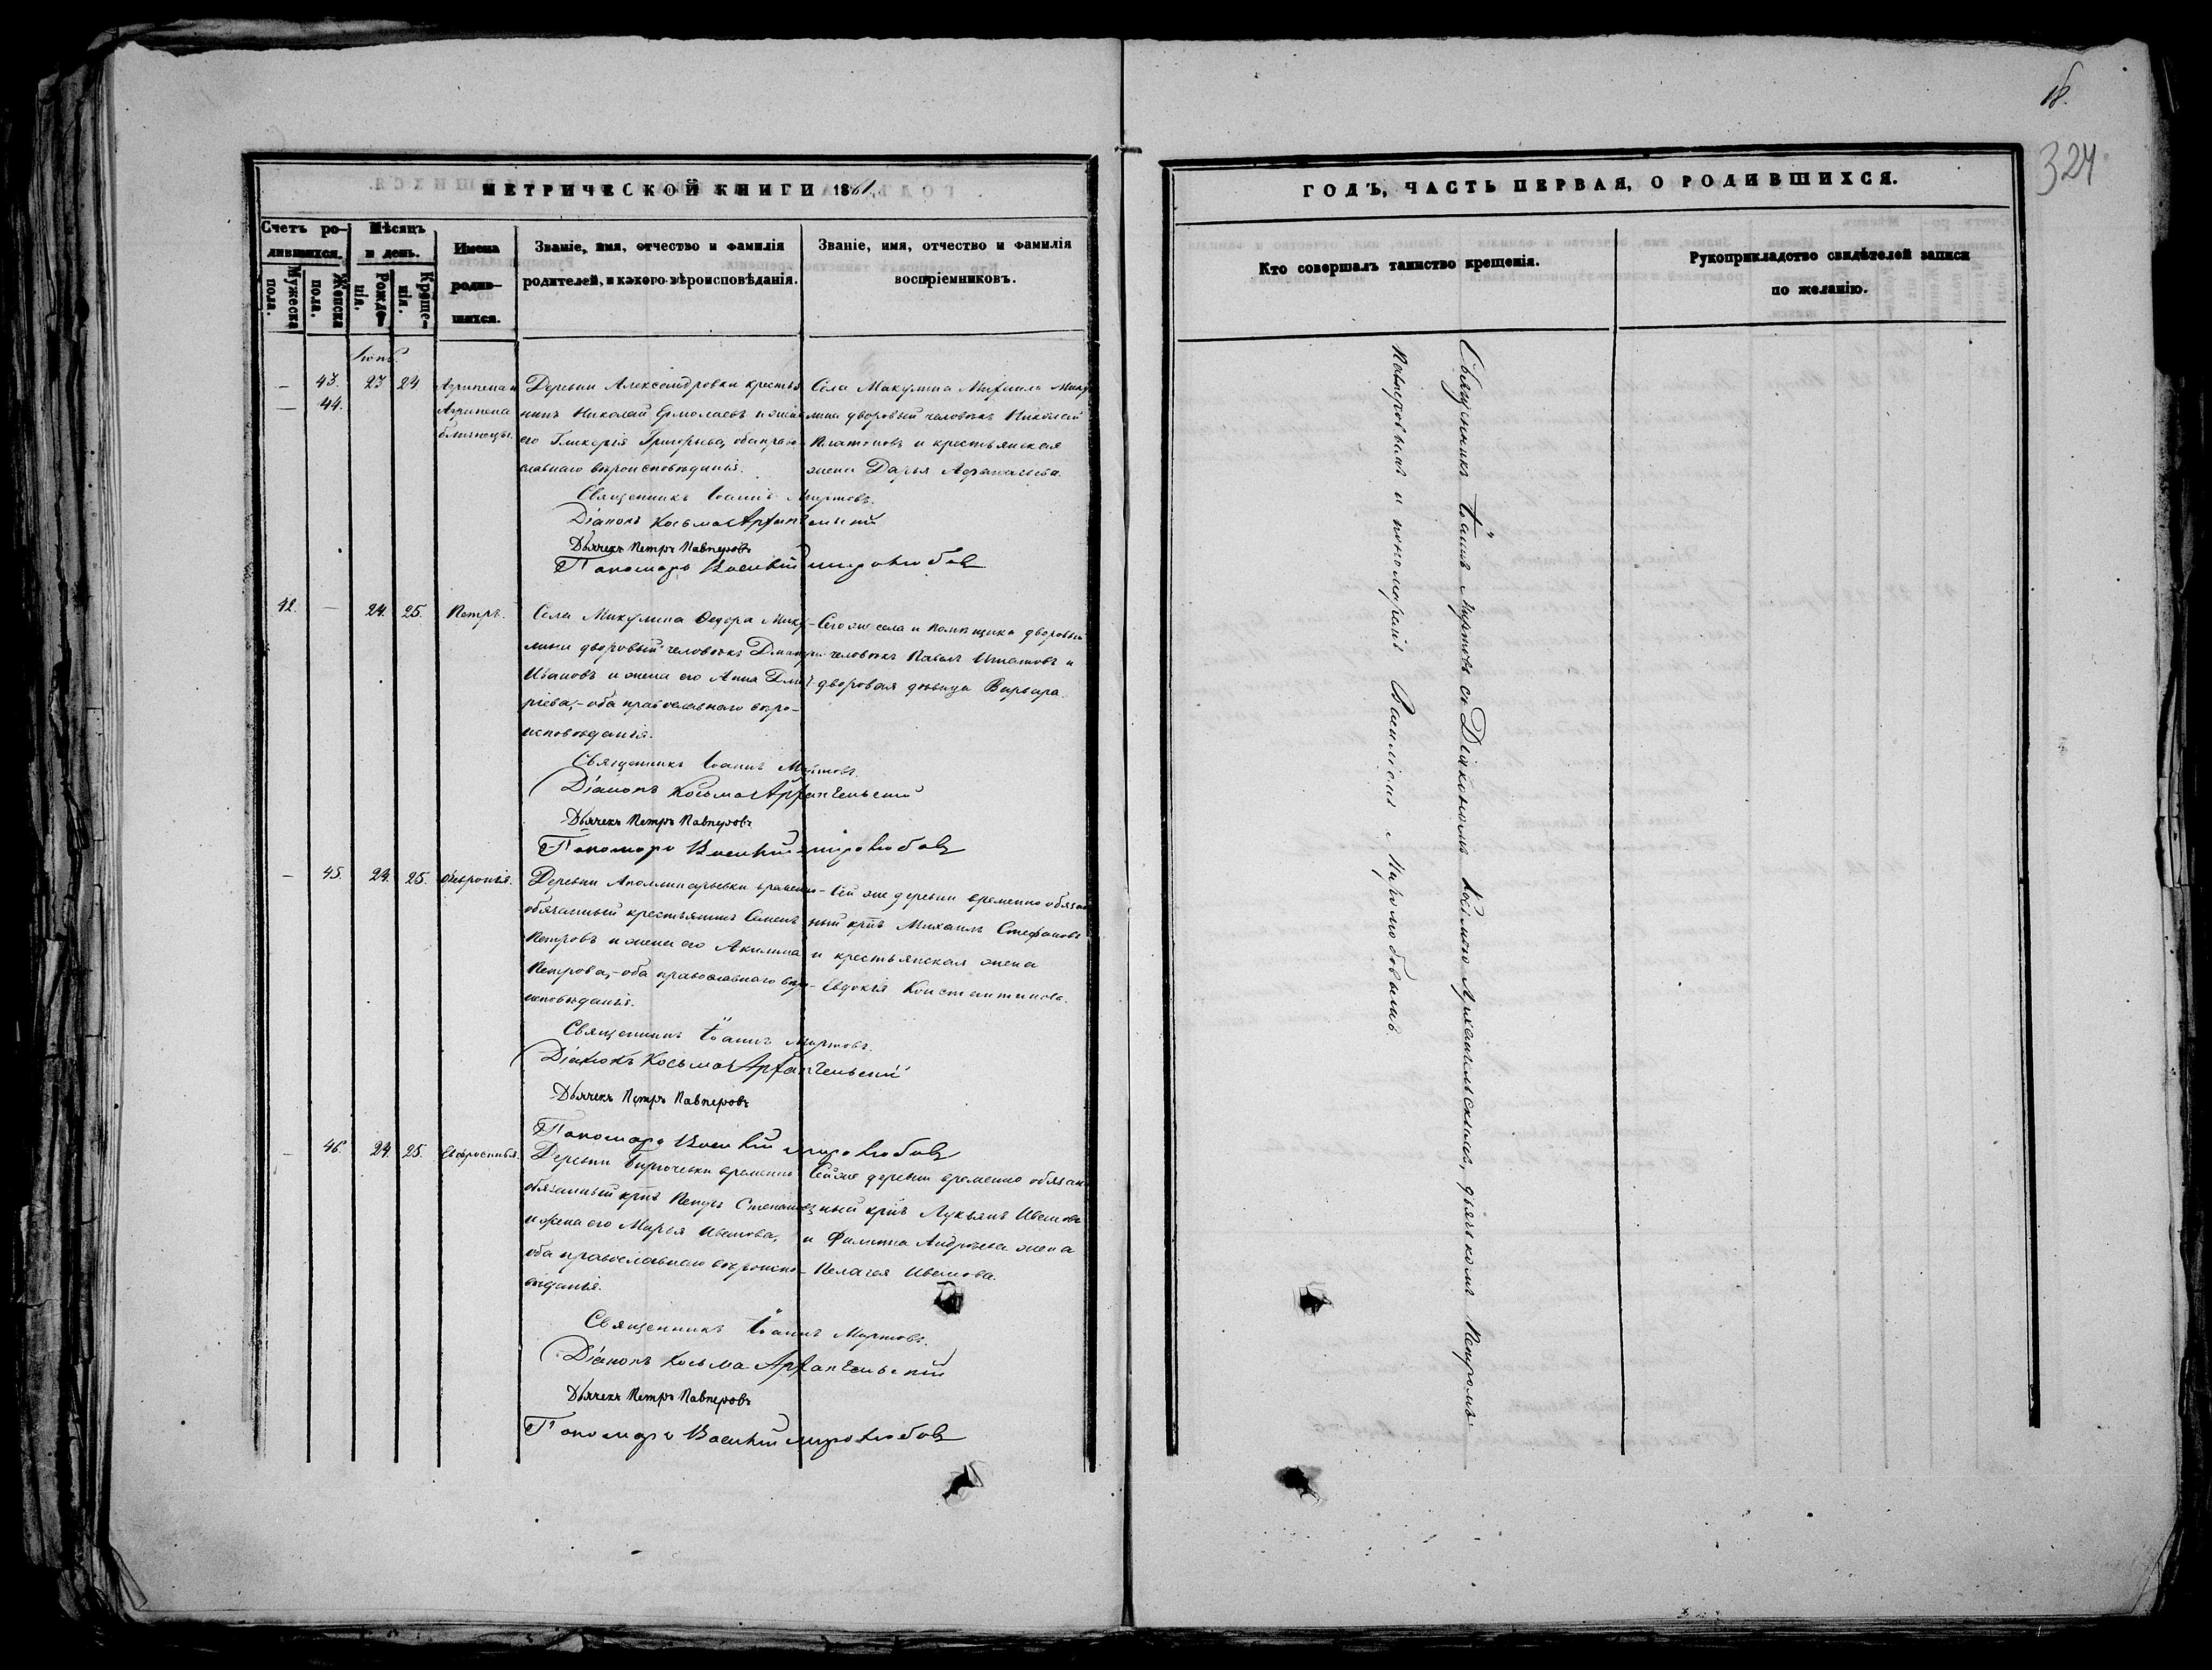 18.
324
МЕТРИЧЕСКОЙ КНИГИ 1861
ГОДЪ, ЧАСТЬ ПЕРВАЯ, О РОДИВШИХСЯ.
Счетъ родившихся.
Мужеска пола.
Женска пола.
Мѣсяцъ и день.
Рожденія.
Крещенія.
Имена родившихся.
Званіе, имя, отчество и фамилія
родителей, и какого вѣроисповѣданія.
Званіе, имя, отчество и фамилія
воспріемниковъ.
Кто совершалъ таинство крещенія.
Рукоприкладство свидѣтелей записи
по желанію.
— 43. 23 24
— 44.
Агрипена и
Агрипена
близнецы.
Деревни Александровки крестья
нинъ Николай Ермолаевъ и жена
его Гликерія Григорьева, оба право
славнаго вѣроисповѣданія.
Села Микулина Михаила Мику
лина дворовый человѣкъ Николай
Платоновъ и крестьянская
жена Дарья Афанасьева.
Священникъ Іоаннъ Миртовъ.
Діаконъ Косьма Архангельскій
Дьячекъ Петръ Павперовъ
Пономарь Василій Миролюбовъ
42. — 24. 25. Петръ.
Села Микулина Ѳедора Мику-
лина дворовый человѣкъ Дмитрій
Ивановъ и жена его Анна Дмит-
ріева, – оба православнаго вѣро-
исповѣданія.
Сего же села и помѣщика дворовый
человѣкъ Павелъ Игнатовъ и
дворовая дѣвица Варвара.
Священникъ Іоаннъ Миртовъ.
Діаконъ Косьма Архангельскій
Дьячекъ Петръ Павперовъ
Пономарь Василій Миролюбовъ
— 45. 24. 25. Ѳевронія.
Деревни Аполлинарьевки временно-
обязанный крестьянинъ Семенъ
Петровъ и жена его Акилина
Петрова, – оба православнаго вѣро-
исповѣданія.
Сей же деревни временно обязан
ный крнъ Михаилъ Стефановъ
и крестьянская жена
Евдокія Константинова.
Священникъ Іоаннъ Миртовъ.
Діаконъ Косьма Архангельскій
Дьячекъ Петръ Павперовъ
Пономарь Василій Миролюбовъ
— 46. 24. 25. Евфросинья.
Деревни Бирючевки временно
обязанный крнъ Петръ Степановъ
и жена его Марья Иванова,
оба православнаго вѣроиспо-
вѣданія.
Сей же деревни временно обязан
ный крнъ Лукьянъ Ивановъ
и Филиппа Андреева жена
Пелагея Иванова.
Священникъ Іоаннъ Миртовъ.
Діаконъ Косьма Архангельскій
Дьячекъ Петръ Павперовъ
Пономарь Василій Миролюбовъ
Священникъ Іоаннъ Миртовъ съ Діакономъ Косьмою Архангельскимъ, дьячкомъ Петромъ
Павперовымъ и пономаремъ Василіемъ Миролюбовымъ.